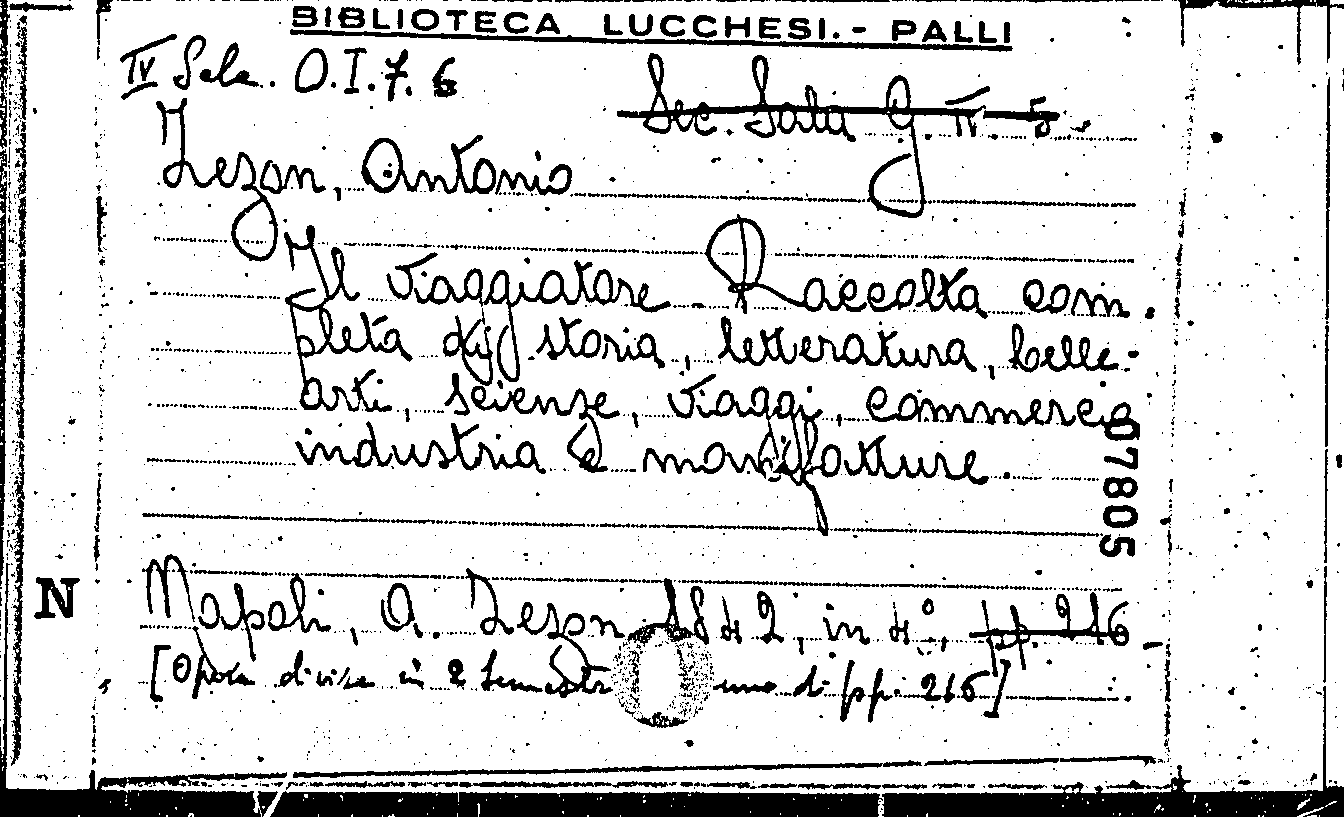 BIBLIOTECA LUCCHESI.- PALLI
IV Sala. O.I.7.6
Sec. Sala G. IV. 5
Zezon, Antonio
Il viaggiatore - Raccolta com-
pleta di storia, letteratura, belle-
arti, scienze, viaggi, commercio
industria e manifatture.
07805
N
Napoli, A. Zezon 1842, in 4°, pp. 216
[Opera divisa in 2 Semestri uno di pp. 216]